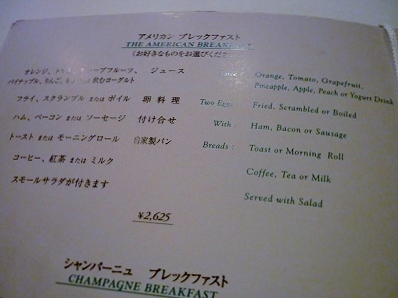 アメリカン ブレックファスト
THE AMERICAN BREAKFAST
(お好きなものをお選びくだ
オレンジ、 フルーツ、 ジュース Orange, Tomato, Grapefruit,
パイナップル、りんご、 飲むヨーグルト Pineapple, Apple, Peach or Yogurt Drink
フライ、スクランブル または ボイル 卵 料 理 Two Eggs: Fried, Scrambled or Boiled
ハム、ベーコン または ソーセージ 付け合せ With: Ham, Bacon or Sausage
トースト または モーニングロール 自家製パン Breads: Toast or Morning Roll
コーヒー、紅茶 または ミルク Coffee, Tea or Milk
スモールサラダが付きます Served with Salad
¥2,625
シャンパーニュ ブレックファスト
CHAMPAGNE BREAKFAST